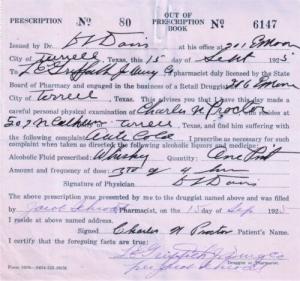 PRESCRIPTION No 80 OUT OF PRESCRIPTION BOOK No 6147
Issued by Dr. D L Davis at his office at 211 E Moore
City of Terrell, Texas, this 15 day of Sept 1925
To L C Griffith Drug Co pharmacist duly licensed by the State
Board of Pharmacy and engaged in the business of a Retail Druggist 206 E Moore
City of Terrell, Texas. This advises you that I have this day made a
careful personal physical examination of Charles N Proctor
507 N Catherine Terrell Texas, and find him suffering with
the following complaint Acute Cold I prescribe as necessary for such
complaint when taken as directed the following alcoholic liquors and medicine:
Alcoholic Fluid prescribed: Whiskey Quantity: One Pint
Amount and frequency of dose: 4
Signature of Physician D L Davis
The above prescription was presented by me to the druggist named above and was filled
by Jacob Pharmacist, on the 15 day Sep 1925
I reside at above named address.
Signed Charles N Proctor Patient's Name.
I certify that the foregoing facts are true:
L C Griffith Drug Co
per Jacob
Druggist or Pharmacist.